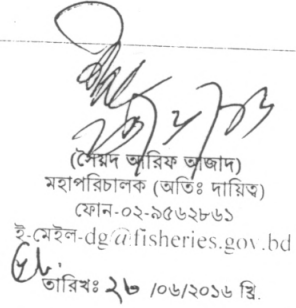 (সৈয়দ আরিফ আজাদ)
মহাপরিচালক (অতিঃ দায়িত্ব)
ফোন-০২-৯৫৬২৮৬১
ই-মেইল-dg@fisheries.gov.bd
তারিখঃ ২৮ /০৬/২০১৬ খ্রি.